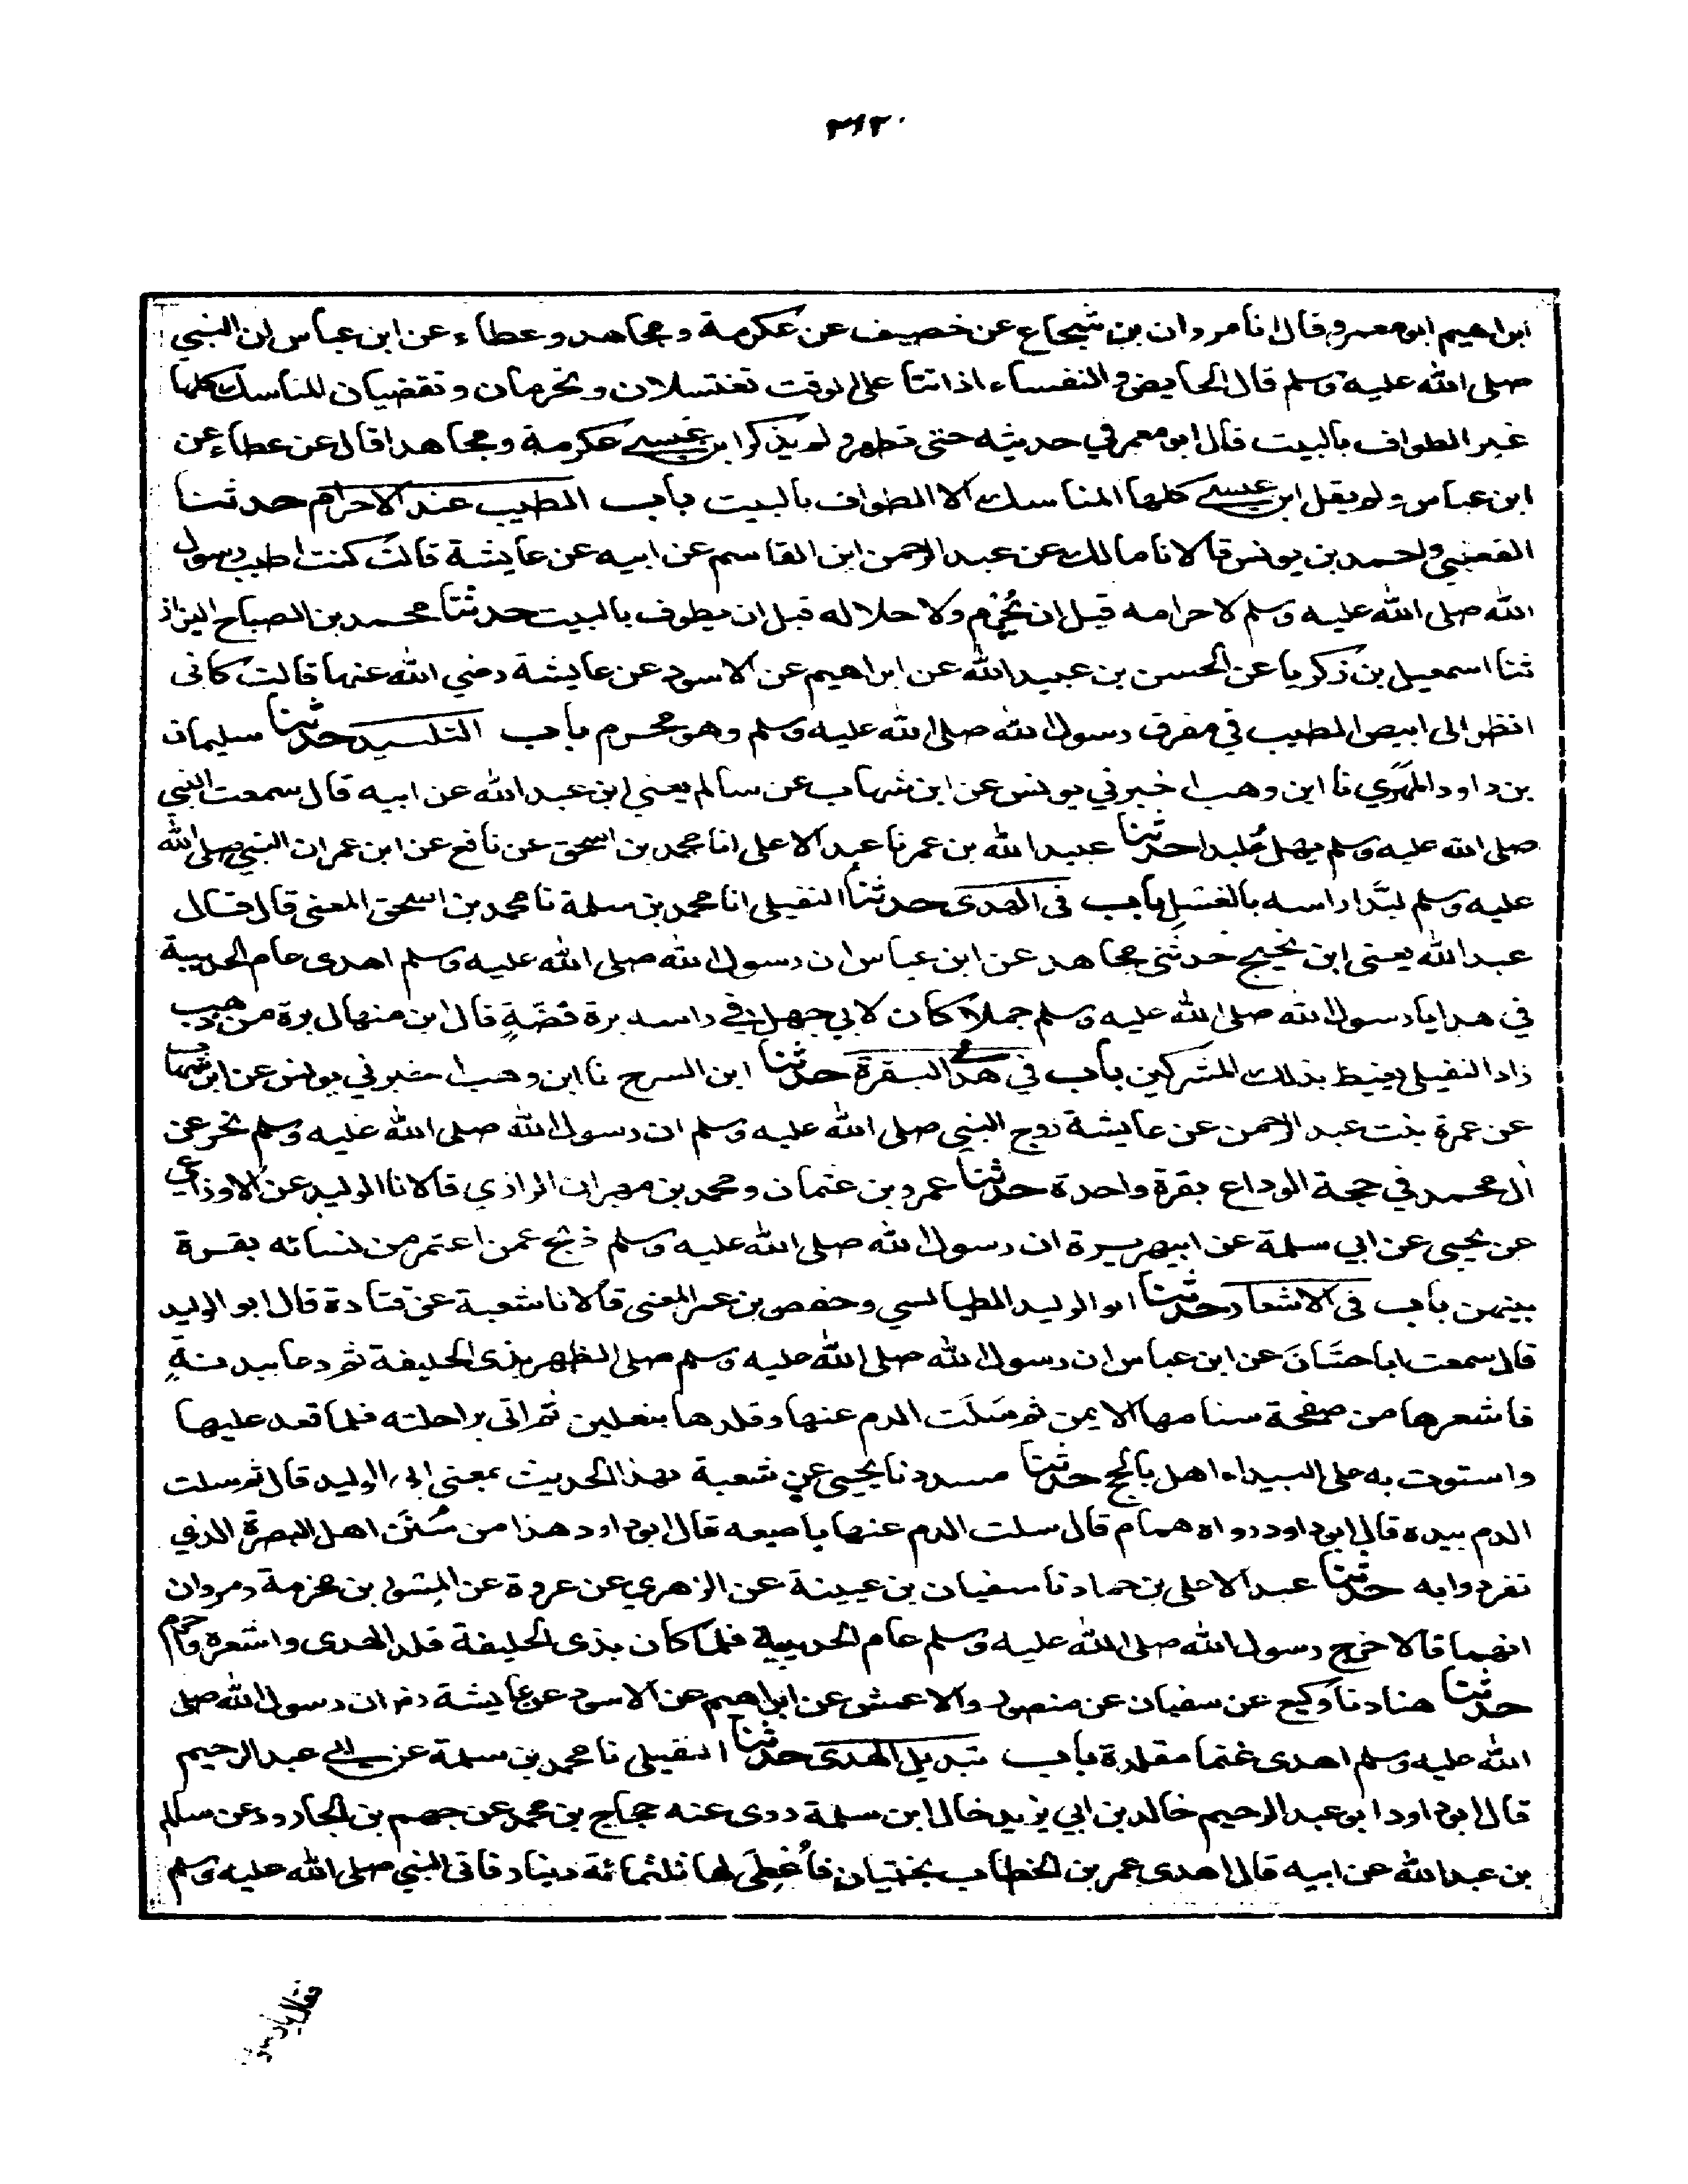 ابراهيم ابو معمر قال نا مروان بن شجاع عن خصيف عن عكرمة و مجاهد و عطاء عن ابن عباس ان النبي
صلى الله عليه وسلم قال الحايض و النفساء اذا اتتا على الوقت تغتسلان و تحرمان و تقضيان المناسك كلها
غير الطواف بالبيت قال ابو معمر في حديثه حتى تطهر و لم يذكر ابن عيسى عكرمة و مجاهدا قال عن عطاء عن
ابن عباس و لم يقل ابن عيسى كلها المناسك الا الطواف بالبيت باب الطيب عند الاحرام حدثنا
القعنبي واحمد بن يونس قالا نا مالك عن عبد الرحمن ابن القاسم عن ابيه عن عايشة قالت كنت اطيب رسول
الله صلى الله عليه وسلم لاحرامه قبل ان يُحْرِم ولاحلاله قبل ان يطوف بالبيت حدثنا محمد بن الصباح البزاز
ثنا اسمعيل بن زكريا عن الحسن بن عبيد الله عن ابراهيم عن الاسود عن عايشة رضي الله عنها قالت كاني
انظر الى ابيص الطيب في مفرق رسول الله صلى الله عليه وسلم وهو محرم باب التلبيد حدثنا سليمان
بن داود المهري نا ابن وهب اخبرني يونس عن ابن شهاب عن سالم يعني ابن عبد الله عن ابيه قال سمعت النبي
صلى الله عليه وسلم يهل مُلبدا حدثنا عبيد الله بن عمر نا عبد الاعلى انا محمد بن اسحق عن نافع عن ابن عمر ان النبي صلى الله
عليه وسلم لبَّد راسه بالغسَلِ باب في الهدى حدثنا النفيلي انا محمد بن سلمة نا محمد بن اسحق المعنى قال قال
عبد الله يعنى ابن نجيح حدثني مجاهد عن ابن عباس ان رسول الله صلى الله عليه وسلم اهدى عام الحديبية
في هدايا رسول الله صلى الله عليه وسلم جملا كان لابي جهل في راسه برة فضّةٍ قال ابن منهال برة من ذهب
زاد النفيلي يغيظ بذلك المشركين باب في هدي البقرة حدثنا ابن السرح نا ابن وهب اخبرني يونس عن ابن شهاب
عن عمرة بنت عبد الرحمن عن عايشة زوج النبي صلى الله عليه وسلم ان رسول الله صلى الله عليه وسلم نحر عن
آل محمد في حجة الوداع بقرة واحدة حدثنا عمرو بن عثمان و محمد بن مهران الرازي قالا نا الوليد عن الاوزاعي
عن يحيى عن ابي سلمة عن ابيهريرة ان رسول الله صلى الله عليه وسلم ذبح عمن اعتمر من نسائه بقرة
بينهن باب في الاشعار حدثنا ابو الوليد الطيالسي و حفص بن عمر المعنى قالا نا شعبة عن قتادة قال ابو الوليد
قال سمعت ابا حسَّانَ عن ابن عباس ان رسول الله صلى الله عليه وسلم صلى الظهر بذى الحليفة ثم دعا ببدنةٍ
فاشعرها من صفحة سنامها الايمن ثم سَلَت الدم عنها و قلدها بنعلين ثم اتى براحلته فلما قعد عليها
واستوت به على البيداء اهل بالحج حدثنا مسدد نا يحيى عن شعبة بهذا الحديث بمعنى ابي الوليد قال ثم سلت
الدم بيده قال ابو داود رواه همام قال سلت الدم عنها باصبعه قال ابو داود هذا من سُنَن اهل البصرة الذي
تفردوا به حدثنا عبد الاعلى بن حماد نا سفيان بن عيينة عن الزهري عن عروة عن المِسْوَر بن مخرمة و مروان
انهما قالا خرج رسول الله صلى الله عليه وسلم عام الحديبية فلما كان بذى الحليفة قلد الهدى واشعره واحرم
حدثنا هناد نا وكيع عن سفيان عن منصور والاعمش عن ابراهيم عن الاسود عن عايشة رضـ ان رسول الله صلى
الله عليه وسلم اهدى غنما مقلدة باب تبديل الهدى حدثنا النفيلي نا محمد بن سلمة عن ابي عبد الرحيم
قال ابو داود ابو عبد الرحيم خالد بن ابي يزيد خال ابن سلمة روى عنه حجاج بن محمد عن جهم بن الجارود عن سالم
بن عبد الله عن ابيه قال اهدى عمر بن الخطاب بختيان فاُعْطِىَ لها ثلثمائة دينار فاتى النبي صلى الله عليه وسلم
فقال يا رسول